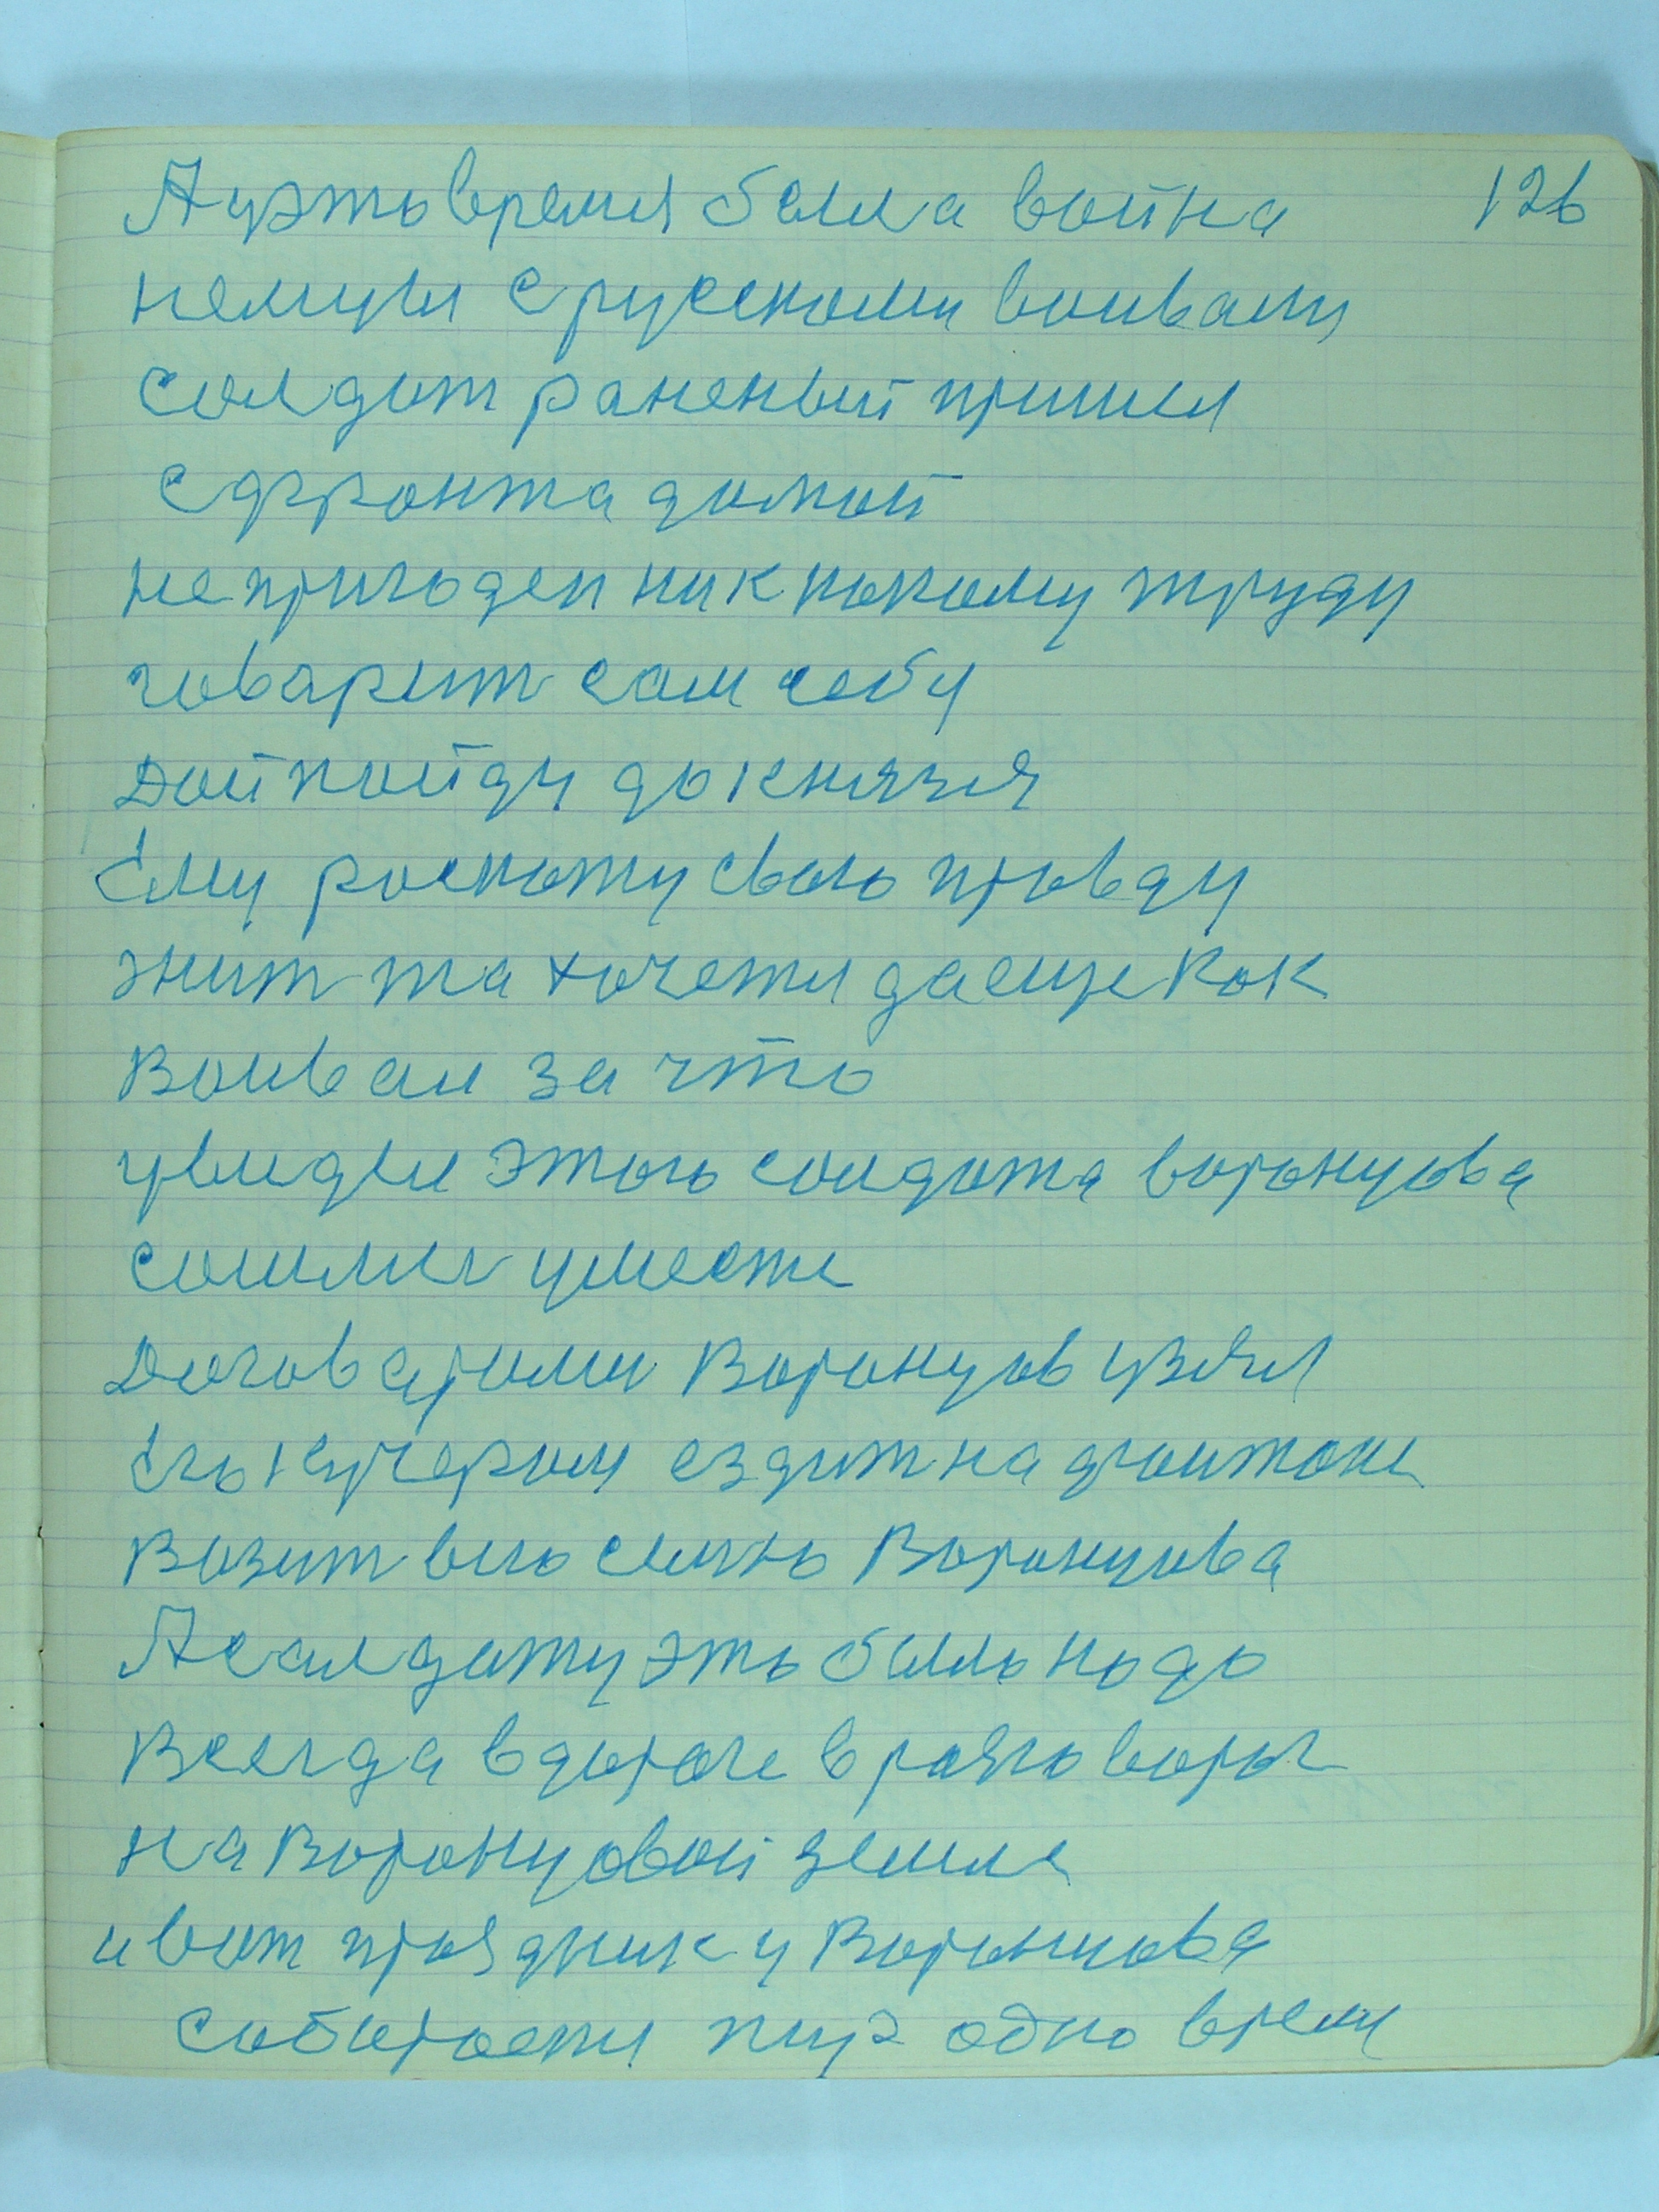 А уэто время была война 126
немцы с рускоми воивали
солдат раненый пришел
с фронта домой
непригоден ник какому труду
говарит сам себи
дойпойду до князя
Ему роскажу свою провду
жит та хочетя даеще как
Воивал за что
увидел этого солдата воронцова
сошлис умести
Договарили Воронцов узял
Его кучером ездит на фоитоне
Возит вего семю Воронцова
А салдату это было надо
Всегда вдороге вразговорах
на Воронцовой земле
и вот праздник у Воронцова
собираетя пир одно время